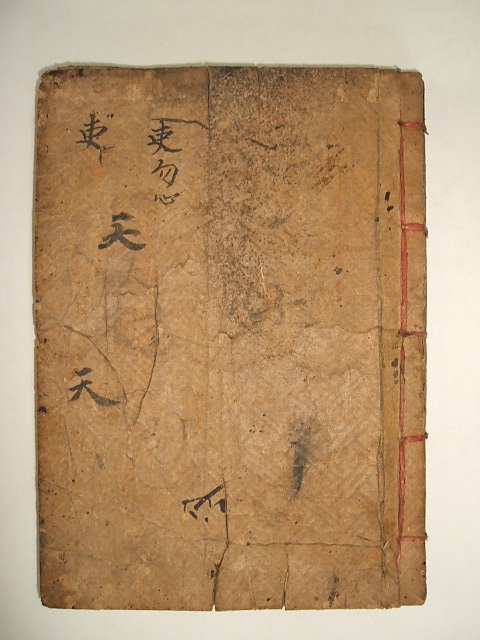 吏勿心
吏
天
天